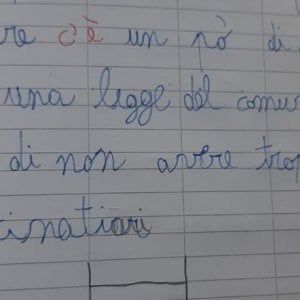 re c'è un pò di
una legge del comu
di non avere tro
inatiari